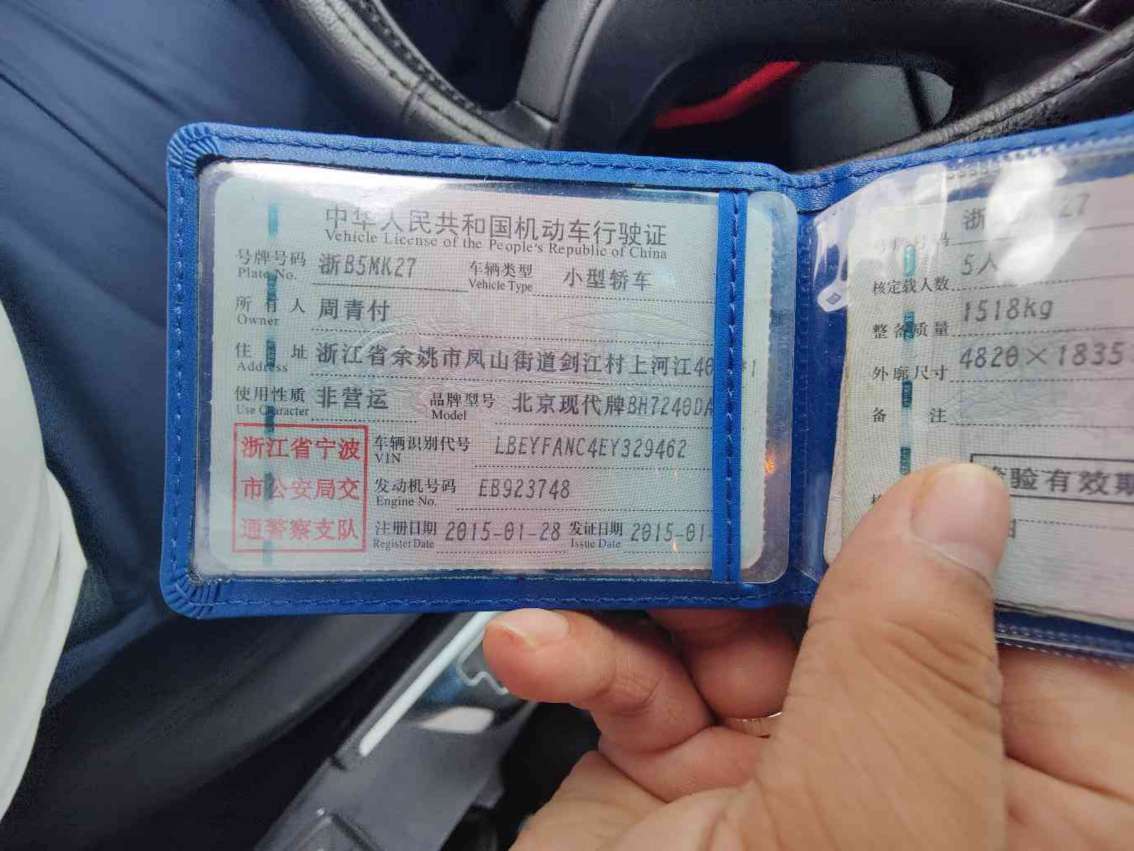 中华人民共和国机动车行驶证
Vehicle License of the People's Republic of China
号牌号码 浙B5MK27 车辆类型 小型轿车
Plate No. Vehicle Type
所有人 周青付
Owner
住址 浙江省余姚市凤山街道剑江村上河江40
Address
使用性质 非营运 品牌型号 北京现代牌BH7240DA
Use Character Model
浙江省宁波
市公安局交
通警察支队
车辆识别代号 LBEYFANC4EY329462
VIN
发动机号码 EB923748
Engine No.
注册日期 2015-01-28 发证日期 2015-01-
Register Date Issue Date
号牌号码 浙 27
核定载人数 5人
整备质量 1518kg
外廓尺寸 4820×1835
备注
验有效期